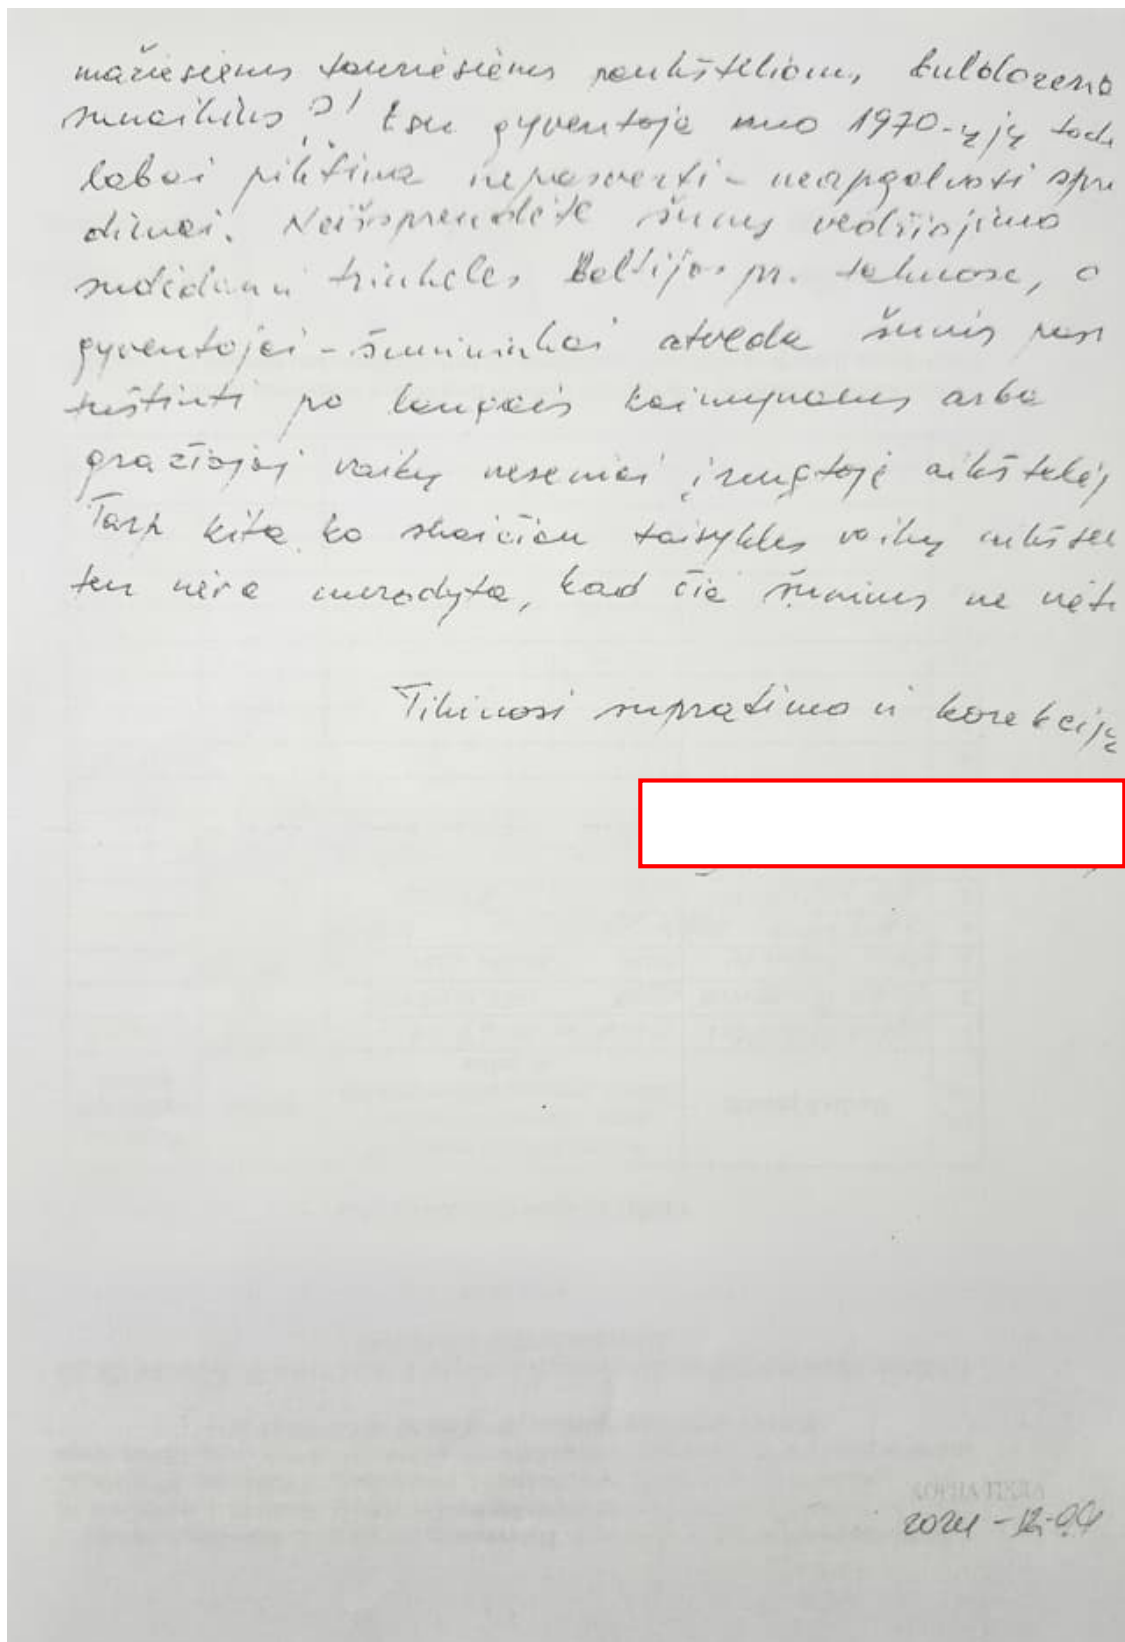 mažiesiems tauriesiems paukšteliams, buldozeriu
sunaikinus?! Esu gyventoja nuo 1970-ųjų tode
labai piktina nepasverti - neapgalvoti spre
dimai. Neišsprendėte šunų vedžiojimo
sudėdami trinkeles Baltijos pr. takuose, o
gyventojai - šunininkai atveda šunis pasi
tuštinti po langais kaimynams arba
gražiojoj vaikų neseniai įrengtoje aikštelėj
Tarp kita ko skaičiau taisykles vaikų aikštel
ten nėra nurodyta, kad čia šunims ne vieta
Tikiuosi supratimo ir korekcijų
KOPIJA TIKRA
2024-12-04